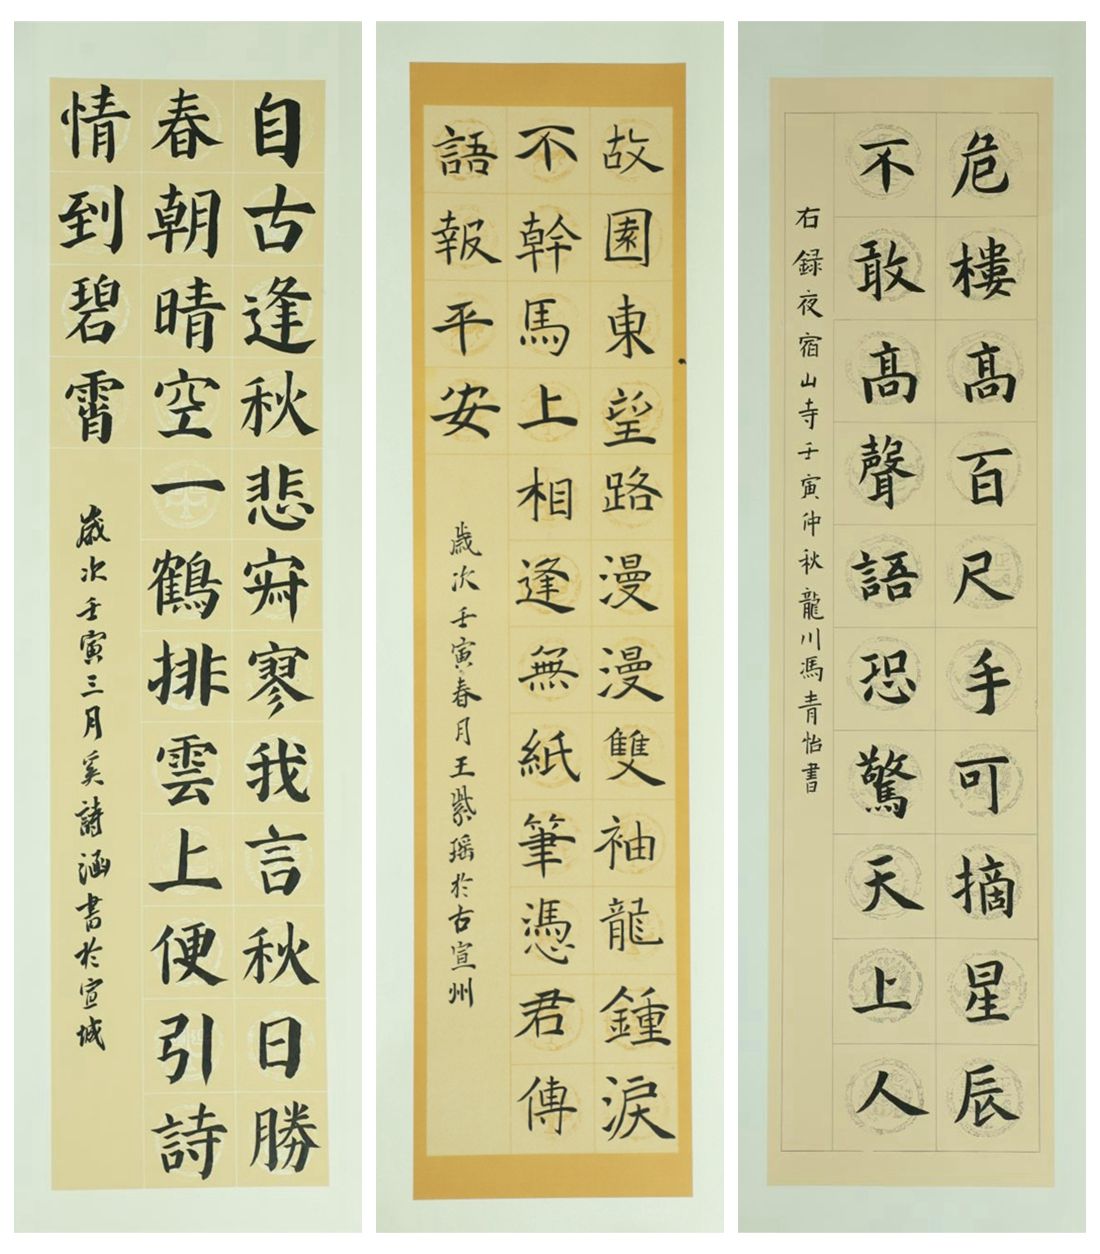 自古逢秋悲寂寥我言秋日勝
春朝晴空一鶴排雲上便引詩
情到碧霄
歲次壬寅三月奚詩涵書於宣城
故園東望路漫漫雙袖龍鍾淚
不幹馬上相逢無紙筆憑君傳
語報平安
歲次壬寅春月王紫瑶於古宣州
危樓髙百尺手可摘星辰
不敢髙聲語恐驚天上人
右録夜宿山寺壬寅仲秋龍川馮青怡書